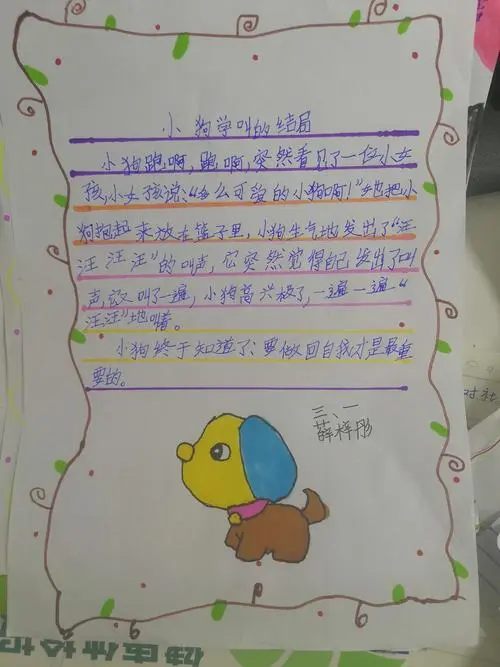 小狗学叫的结局
小狗跑啊,跑啊,突然看见了一位小女
孩,小女孩说:“多么可爱的小狗啊!”她把小
狗抱起来放在篮子里,小狗生气地发出了“汪
汪汪汪”的叫声,它突然觉得自己发出了叫
声,又叫了一遍,小狗高兴极了,一遍一遍“
汪汪”地叫着。
小狗终于知道了:要做回自我才是最重
要的。
三、一
薛梓彤